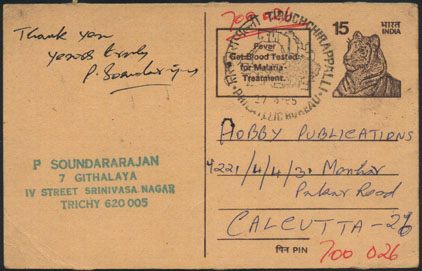 Thank you
yours truly
P. Soundararajan
P SOUNDARARAJAN
7 GITHALAYA
IV STREET SRINIVASA NAGAR
TRICHY 620 005
700 026
TIRUCHCHIRAPPALLI
PHILATELIC BUREAU
Fever
Get Blood Tested
for Malaria
Treatment.
15
भारत
INDIA
HOBBY PUBLICATIONS
4221/4/4/3,
Road
CALCUTTA-26
पिन PIN
700 026